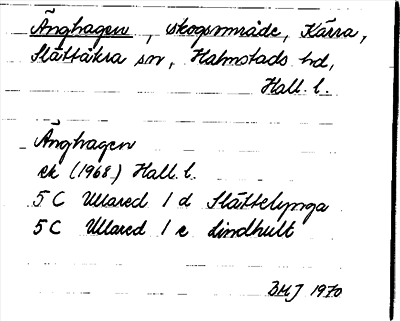 Änghagen, skogsområde, Kärra,
Slättåkra sn, Halmstads hd,
Hall. l.
Änghagen
ek (1968) Hall. l.
5 C Ullared 1 d Slättelynga
5 C Ullared 1 e Lindhult
BMJ 1970